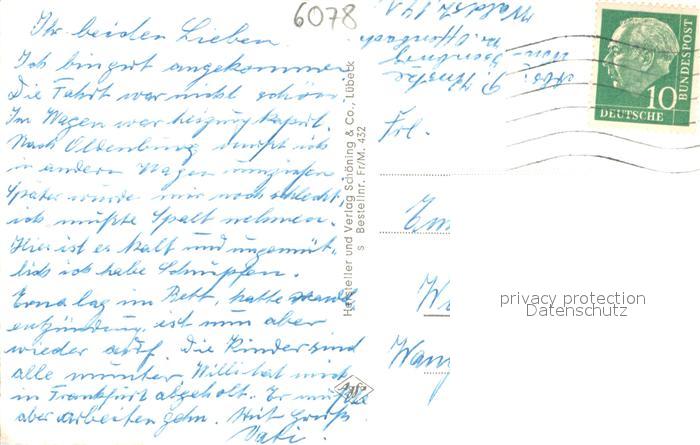 6078
Ihr beiden Lieben
Ich bin gut angekommen
Die Fahrt war nicht schön
Im Wagen war heizung kaput.
Nach Oldenburg mußt ich
in andern Wagen umziehen
Später wurde mir noch schlecht
ich mußte Spalt nehmen.
Hier ist es kalt und ungemüt,
lich ich habe Schnupfen.
Erna lag im Bett, hatte
entzündung, ist nun aber
wieder auf. Die Kinder sind
alle munter. Willi hat mich
in Frankfurt abgeholt. Er mußte
aber arbeiten gehn. Mit Gruß
Vati.
Hersteller und Verlag Schöning & Co., Lübeck
S Bestellnr. Fr/M. 432
Agfa
Abs:
Offenbach
Frl.
DEUTSCHE
BUNDESPOST
10
privacy protection
Datenschutz